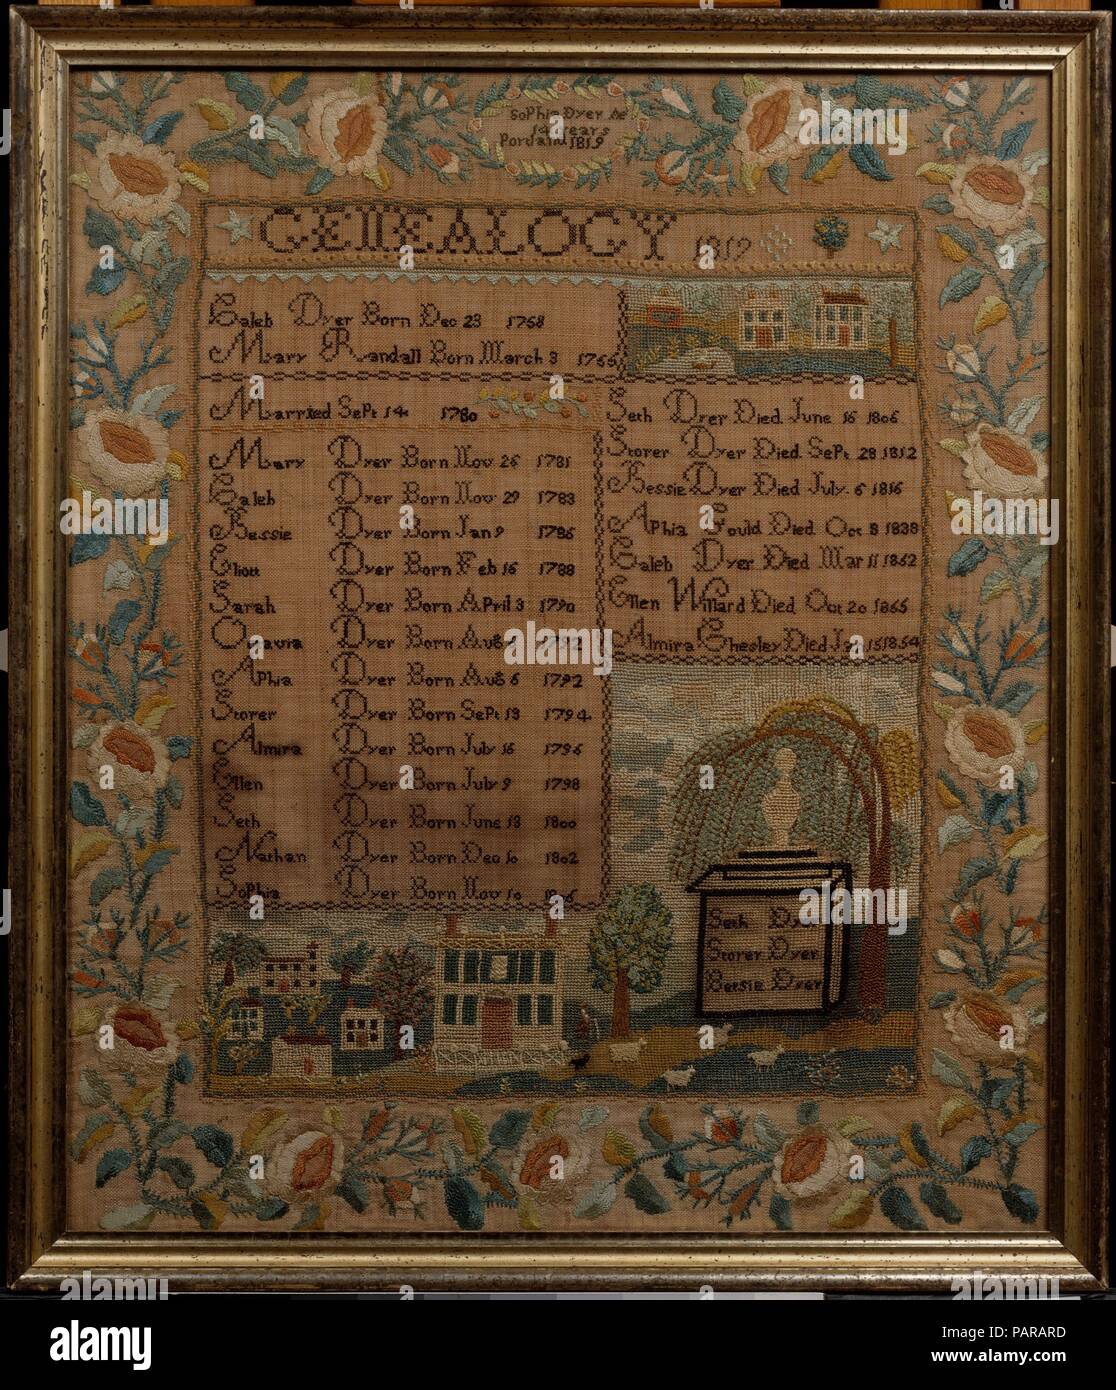 SoPhia Dyer Ae
14 years
Portland 1819
GENEALOGY 1819
Caleb Dyer Born Dec 23 1758
Mary Randall Born March 3 1766
Married SePt 14 1780
Mary Dyer Born Nov 26 1781
Caleb Dyer Born Nov 29 1783
Bessie Dyer Born Jan 9 1786
Eliott Dyer Born Feb 16 1788
Sarah Dyer Born APril 3 1790
Octavia Dyer Born Aug 6 1792
APhia Dyer Born Aug 6 1792
Storer Dyer Born SePt 13 1794
Almira Dyer Born July 16 1796
Ellen Dyer Born July 9 1798
Seth Dyer Born June 18 1800
Nathan Dyer Born Dec 10 1802
SoPhia Dyer Born Nov 10
Seth Dyer Died June 16 1806
Storer Dyer Died SePt 28 1812
Bessie Dyer Died July 6 1816
APhia Gould Died Oct 8 1838
Caleb Dyer Died Mar 11 1852
Ellen Willard Died Oct 20 1865
Almira Chesley Died 1854
Seth Dyer
Storer Dyer
Betsie Dyer
alamy
Image ID: PARARD
www.alamy.com